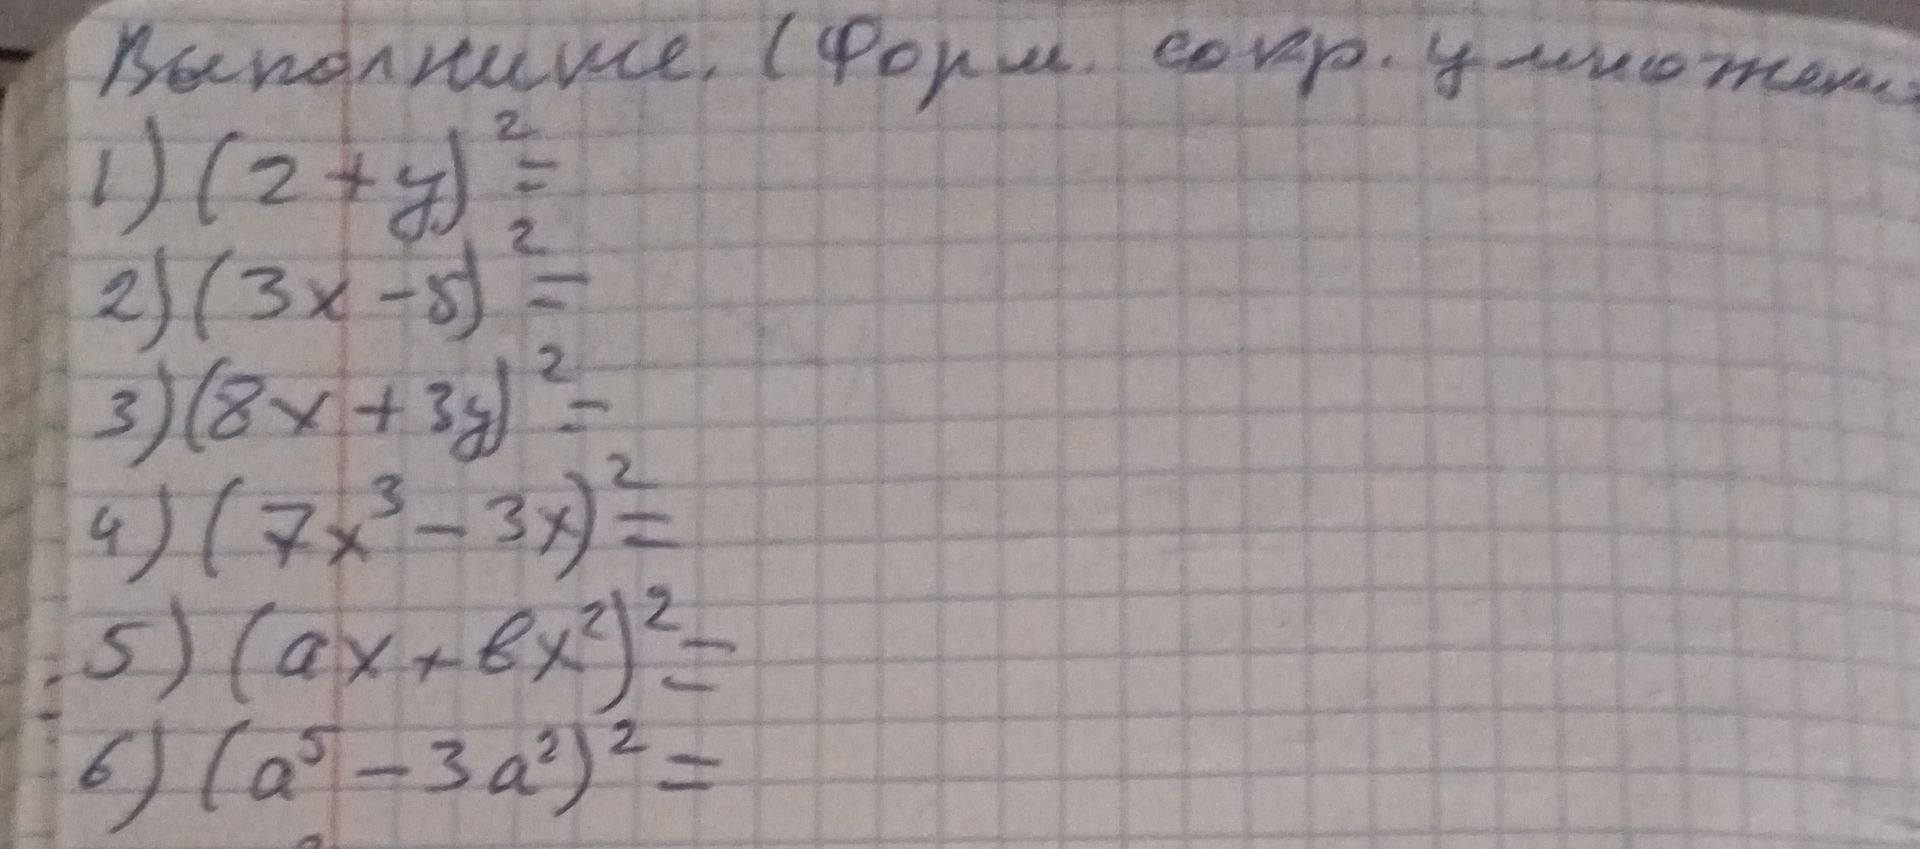 Выполните. (Форм. сокр. умножен.
1) (2 + y)² =
2) (3x - 5)² =
3) (8x + 3y)² =
4) (7x³ - 3x)² =
5) (ax + bx²)² =
6) (a⁵ - 3a²)² =